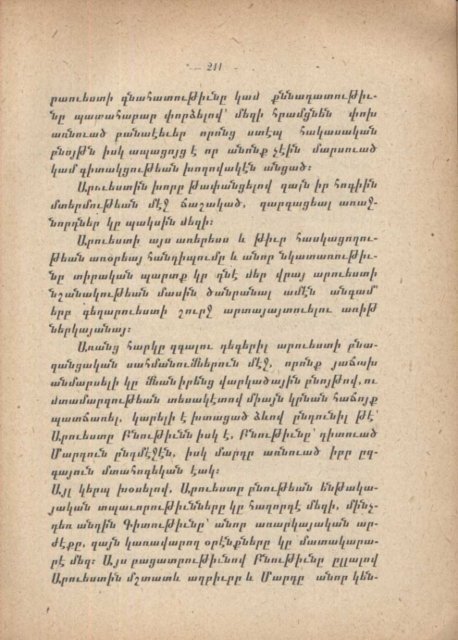 — 241 —
րաուեստի գնահատութիւնը կամ քննադատութիւ-
նը պատահաբար փորձելով՝ մեզի հրամցնեն փոխ
առնուած բանաձեւեր որոնց ստէպ հակասական
բնոյթն իսկ ապացոյց է որ անոնք չէին մարսուած
կամ գիտակցութեան խողովակէն անցած։
Արուեստին խորը թափանցելով զայն իր հոգիին
մտերմութեան մէջ ճաշակած, զարգացեալ առաջ-
նորդներ կը պակսին մեզի։
Արուեստի այս առերեսս և թիւր հասկացողու-
թեան առօրեայ հանդիպումը և անոր նկատառութիւ-
նը տիրական պարտք կը դնէ մեր վրայ արուեստի
նշանակութեան մասին ծանրանալ ամէն անգամ՝
երբ գեղարուեստի շուրջ արտայայտուելու առիթ
ներկայանայ։
Առանց հարկը զգալու դեգերիլ արուեստի բնա-
զանցական սահմանումներուն մէջ, որոնք յաճախ
անմարսելի կը մնան իրենց վարկածային բնոյթով, ու
մտամարզութեան տեսակէտով միայն կրնան հաճոյք
պատճառել, կարելի է խտացած ձևով ընդունիլ թէ՝
Արուեստը Բնութիւնն իսկ է, Բնութիւնը՝ դիտուած
Մարդուն ընդմէջէն, իսկ մարդը առնուած իբր ըզ-
գայուն մտահոգեկան էակ։
Այլ կերպ խօսելով, Արուեստը բնութեան ենթակա-
յական տպաւորութիւնները կը հաղորդէ մեզի, մինչ-
դեռ անդին Գիտութիւնը՝ անոր առարկայական ար-
ժէքը, զայն կառավարող օրէնքները կը մատակարա-
րէ մեզ։ Այս բացատրութիւնով Բնութիւնը ըլլալով
Արուեստին մշտատև աղբիւրը և Մարդը անոր կեն-